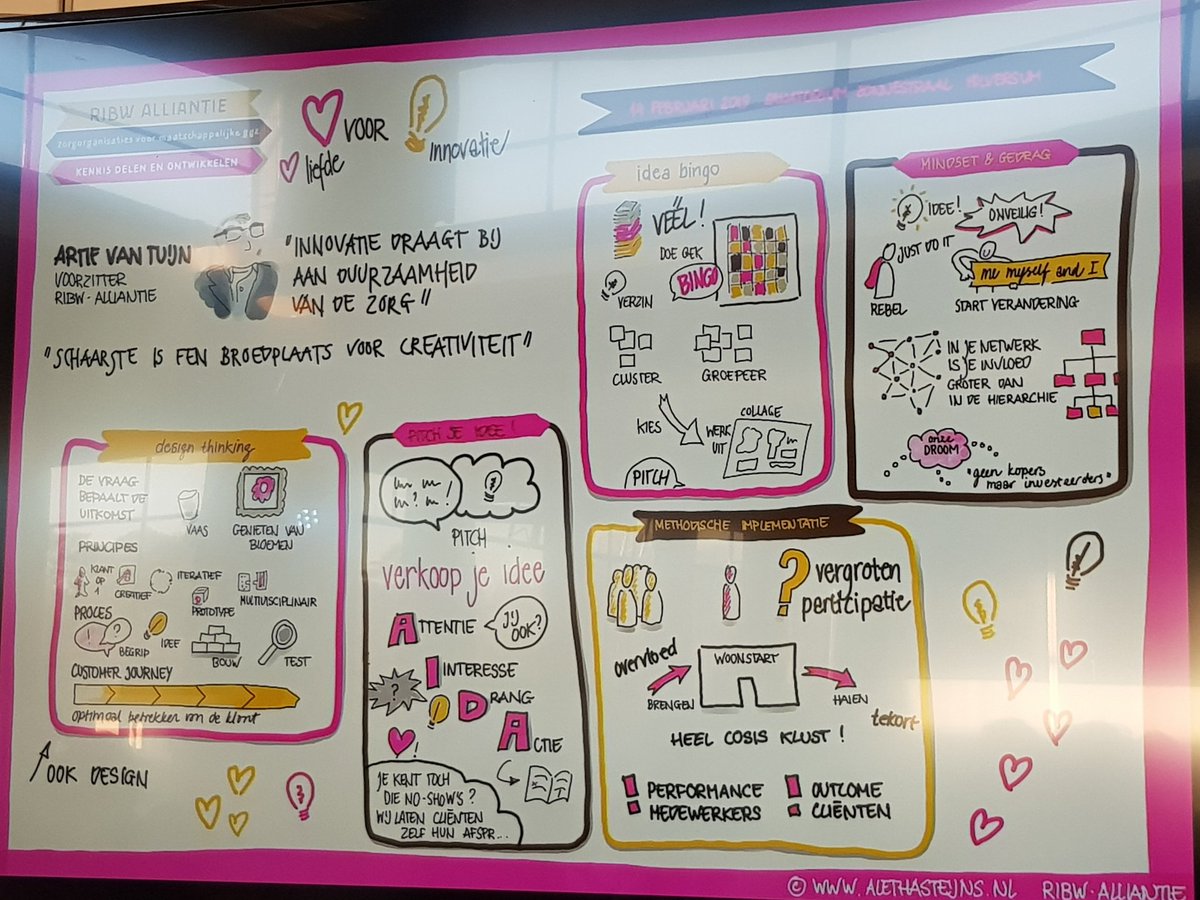 RIBW ALLIANTIE
zorgorganisaties voor maatschappelijke ggz
KENNIS DELEN EN ONTWIKKELEN
VOOR
liefde
innovatie
14 FEBRUARI 2019 HILVERSUM
ARTIE VAN TUIJN
VOORZITTER
RIBW-ALLIANTIE
"INNOVATIE DRAAGT BIJ
AAN DUURZAAMHEID
VAN DE ZORG"
"SCHAARSTE IS EEN BROEDPLAATS VOOR CREATIVITEIT"
design thinking
DE VRAAG
BEPAALT DE
UITKOMST
VAAS
GENIETEN VAN
BLOEMEN
PRINCIPES
KLANT
OP
1
CREATIEF
ITERATIEF
PROTOTYPE
MULTIDISCIPLINAIR
PROCES
?
BEGRIP
IDEE
BOUW
TEST
CUSTOMER JOURNEY
optimaal betrekken van de klant
OOK DESIGN
PITCH JE IDEE!
PITCH
verkoop je idee
ATTENTIE
JIJ
OOK?
INTERESSE
?
DRANG
ACTIE
!
JE KENT TOCH
DIE NO-SHOW'S?
WIJ LATEN CLIËNTEN
ZELF HUN AFSPR...
idea bingo
VÉÉL!
DOE GEK
BINGO
VERZIN
CLUSTER
GROEPEER
KIES
WERK
UIT
COLLAGE
PITCH
MINDSET & GEDRAG
IDEE!
ONVEILIG!
JUST DO IT
REBEL
me myself and I
START VERANDERING
IN JE NETWERK
IS JE INVLOED
GROTER DAN
IN DE HIERARCHIE
onze
DROOM
"geen kopers
maar investeerders"
METHODISCHE IMPLEMENTATIE
?
vergroten
participatie
overvloed
BRENGEN
WOONSTART
HALEN
tekort
HEEL COSIS KLUST!
! PERFORMANCE
MEDEWERKERS
! OUTCOME
CLIËNTEN
© WWW.ALETHASTEIJNS.NL RIBW-ALLIANTIE